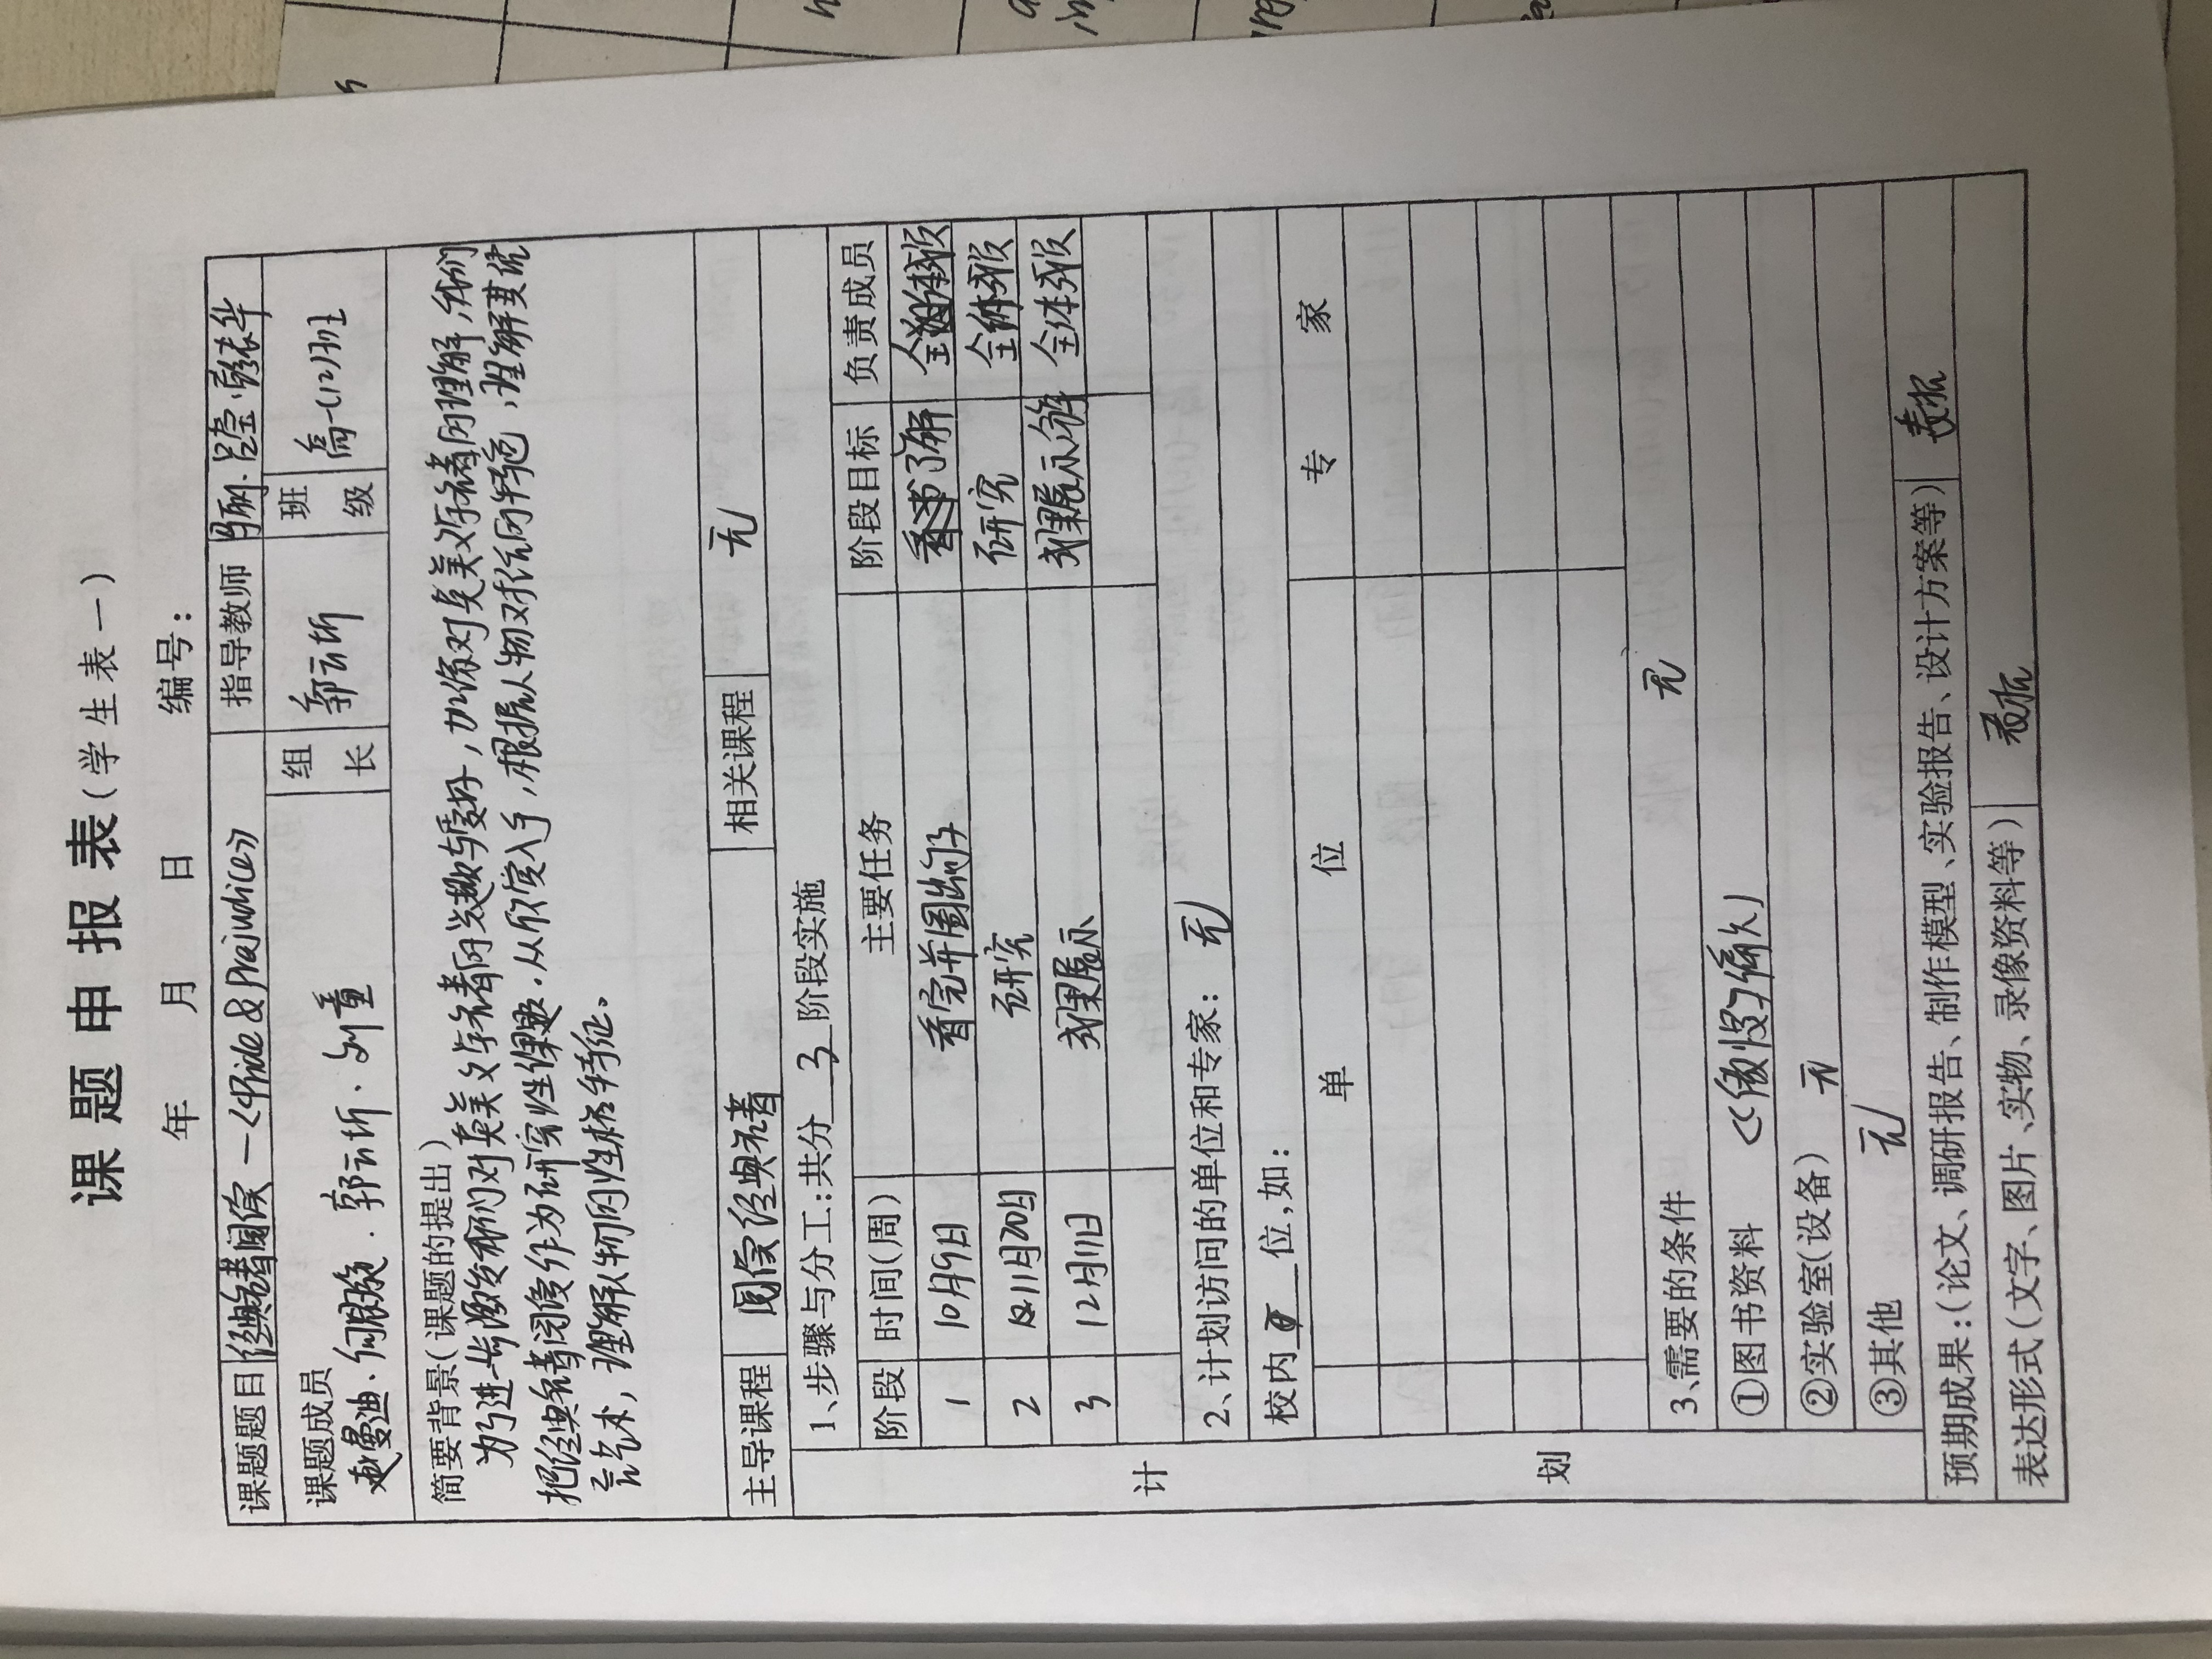 课题申报表(学生表一)
年 月 日 编号:
课题题目 经典名著阅读—《Pride & Prejudice》 指导教师
课题成员 郭云昕. 刘童 组长 郭云昕 班级 高一(12)班
简要背景(课题的提出)
为了进一步激发我们对真美文学名著的兴趣与爱好,加深对英美文学名著的理解,我们
把经典名著阅读作为研究性课题.从欣赏入手,根据人物对话的特色,理解其优
言艺术,理解人物的性格特征。
主导课程 阅读经典名著 相关课程 无
计划
1、步骤与分工:共分 3 阶段实施
阶段 时间(周) 主要任务 阶段目标 负责成员
1 10月9日 看完并画出例子 看书了解 全体成员
2 11月20日 研究 研究 全体成员
3 12月11日 成果展示 成果展示 全体成员
2、计划访问的单位和专家: 无
校内 位,如:
单位 专家
3、需要的条件 无
①图书资料 《傲慢与偏见》
②实验室(设备) 无
③其他 无
预期成果:(论文、调研报告、制作模型、实验报告、设计方案等) 表格
表达形式(文字、图片、实物、录像资料等) 表格